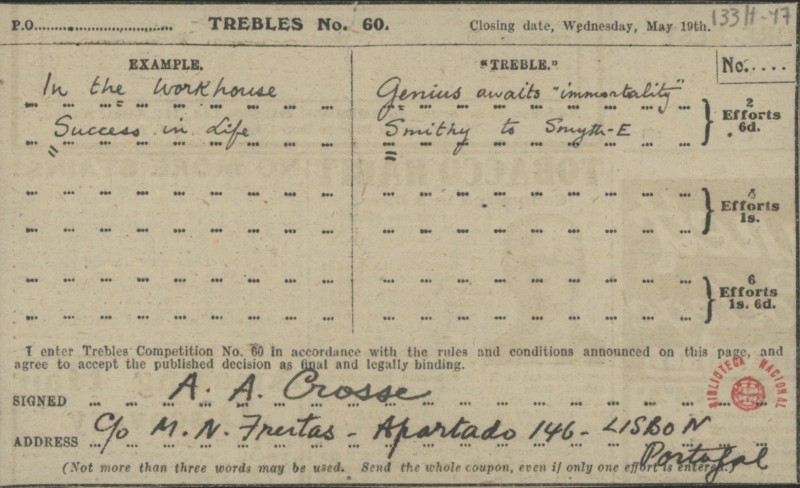 P.O. TREBLES No. 60. Closing date, Wednesday, May 19th. 133H-47
EXAMPLE. "TREBLE." No.....
In the Workhouse Genius awaits "immortality"
Success in Life Smithy to Smyth-E
2 Efforts 6d.
4 Efforts 1s.
6 Efforts 1s. 6d.
I enter Trebles Competition No. 60 in accordance with the rules and conditions announced on this page, and
agree to accept the published decision as final and legally binding.
SIGNED A. A. Crosse
ADDRESS c/o M. N. Freitas - Apartado 146 - LISBON
Portugal
(Not more than three words may be used. Send the whole coupon, even if only one effort is entered.)
BIBLIOTECA NACIONAL